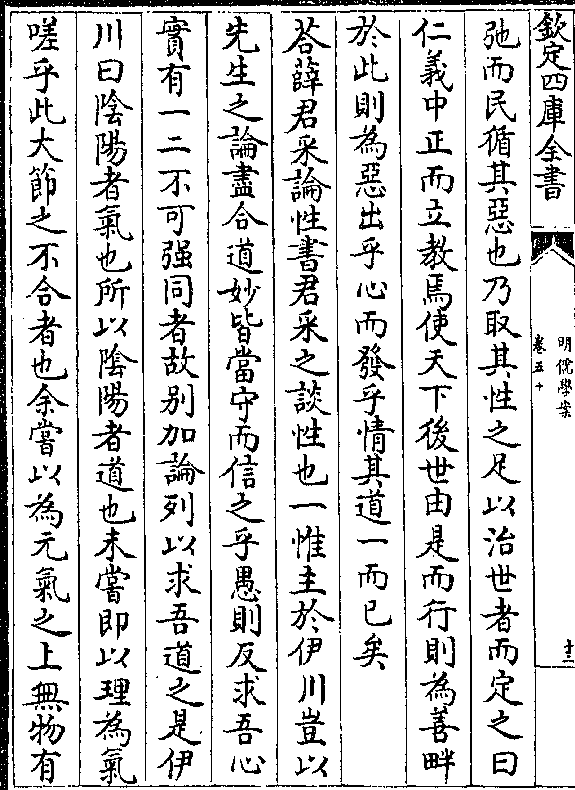 欽定四庫全書
明儒學案
卷五十
十二
弛而民循其惡也乃取其性之足以治世者而定之曰
仁義中正而立教焉使天下後世由是而行則為善畔
於此則為惡出乎心而發乎情其道一而已矣
荅薛君采論性書君采之談性也一惟主於伊川豈以
先生之論盡合道妙皆當守而信之乎愚則反求吾心
實有一二不可强同者故别加論列以求吾道之是伊
川曰陰陽者氣也所以陰陽者道也未嘗即以理為氣
嗟乎此大節之不合者也余嘗以為元氣之上無物有